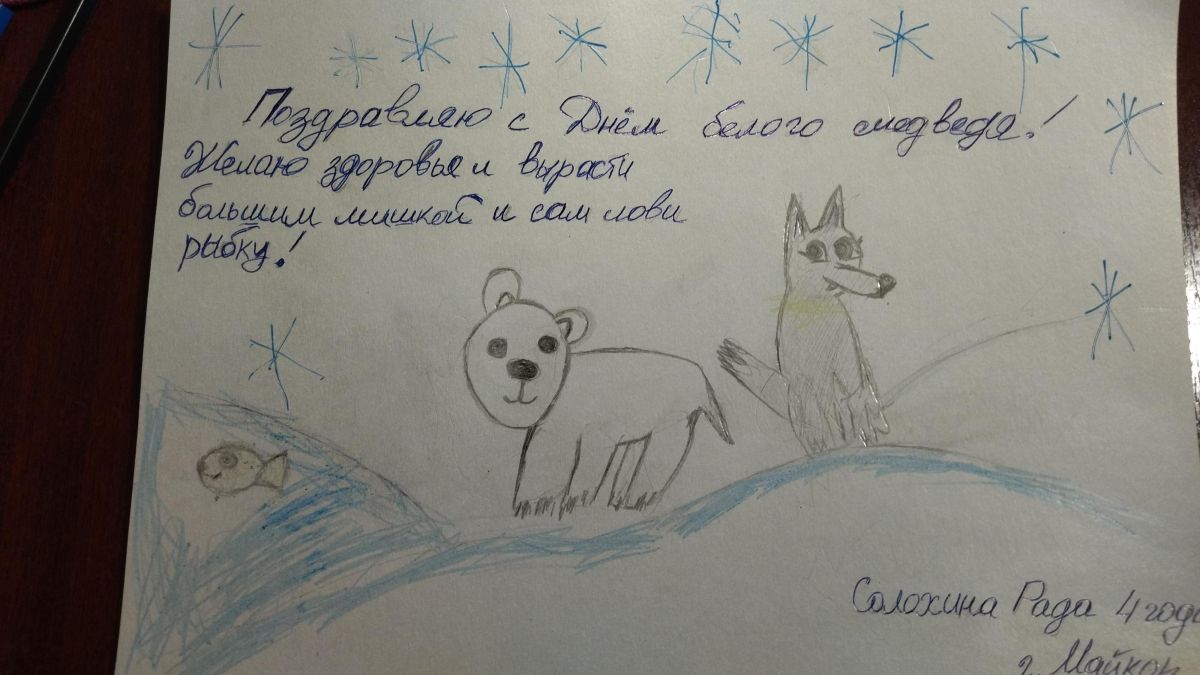 Поздравляю с Днём белого медведя!
Желаю здоровья и вырасти
большим мишкой и сам лови
рыбку!
Солохина Рада 4 года
г. Майкоп